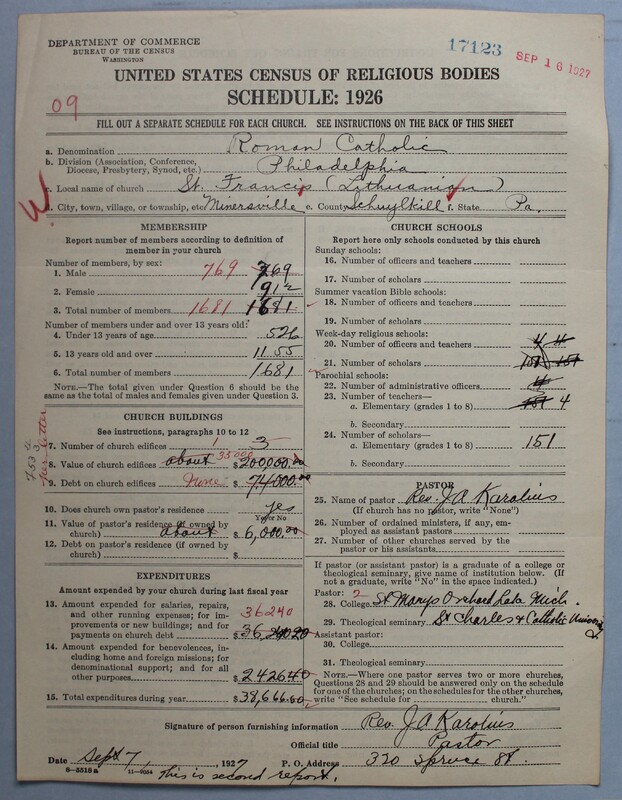 DEPARTMENT OF COMMERCE
BUREAU OF THE CENSUS
WASHINGTON
17123
SEP 16 1927
UNITED STATES CENSUS OF RELIGIOUS BODIES
SCHEDULE: 1926
09
FILL OUT A SEPARATE SCHEDULE FOR EACH CHURCH. SEE INSTRUCTIONS ON THE BACK OF THIS SHEET
a. Denomination Roman Catholic
b. Division (Association, Conference, Diocese, Presbytery, Synod, etc.) Philadelphia
c. Local name of church St. Francis (Lithuanian)
d. City, town, village, or township, etc. Minersville e. County Schuylkill f. State Pa.
MEMBERSHIP
Report number of members according to definition of
member in your church
Number of members, by sex:
1. Male 769 769
2. Female 912
3. Total number of members 1681 1681
Number of members under and over 13 years old:
4. Under 13 years of age 526
5. 13 years old and over 1155
6. Total number of members 1681
NOTE.—The total given under Question 6 should be the
same as the total of males and females given under Question 3.
CHURCH BUILDINGS
See instructions, paragraphs 10 to 12
7. Number of church edifices 1 3
8. Value of church edifices about 35000 $200,000.00
9. Debt on church edifices None $74000.00
per letter
10. Does church own pastor's residence yes
Yes or No
11. Value of pastor's residence (if owned by
church) about $6,000.00
12. Debt on pastor's residence (if owned by
church) $
EXPENDITURES
Amount expended by your church during last fiscal year
13. Amount expended for salaries, repairs,
and other running expenses; for im-
provements or new buildings; and for
payments on church debt 36240 $36240.20
14. Amount expended for benevolences,
including home and foreign missions; for
denominational support; and for all
other purposes $2426.40
15. Total expenditures during year $38,666.60
CHURCH SCHOOLS
Report here only schools conducted by this church
Sunday schools:
16. Number of officers and teachers
17. Number of scholars
Summer vacation Bible schools:
18. Number of officers and teachers
19. Number of scholars
Week-day religious schools:
20. Number of officers and teachers 4 4
21. Number of scholars 151 151
Parochial schools:
22. Number of administrative officers 4
23. Number of teachers—
a. Elementary (grades 1 to 8) 151 4
b. Secondary
24. Number of scholars—
a. Elementary (grades 1 to 8) 151
b. Secondary
PASTOR
25. Name of pastor Rev. J A Karalius
(If church has no pastor, write "None")
26. Number of ordained ministers, if any, em-
ployed as assistant pastors
27. Number of other churches served by the
pastor or his assistants
If pastor (or assistant pastor) is a graduate of a college or
theological seminary, give name of institution below. (If
not a graduate, write "No" in the space indicated.)
Pastor: 2
28. College St Marys Orchard Lake Mich
29. Theological seminary St Charles & Catholic University
Assistant pastor:
30. College
31. Theological seminary
NOTE.—Where one pastor serves two or more churches,
Questions 28 and 29 should be answered only on the schedule
for one of the churches; on the schedules for the other churches,
write "See schedule for church."
Signature of person furnishing information Rev. J A Karalius
Official title Pastor
Date Sept 7, 1927 P. O. Address 320 Spruce St.
8-5518a 11-9054
This is second report.